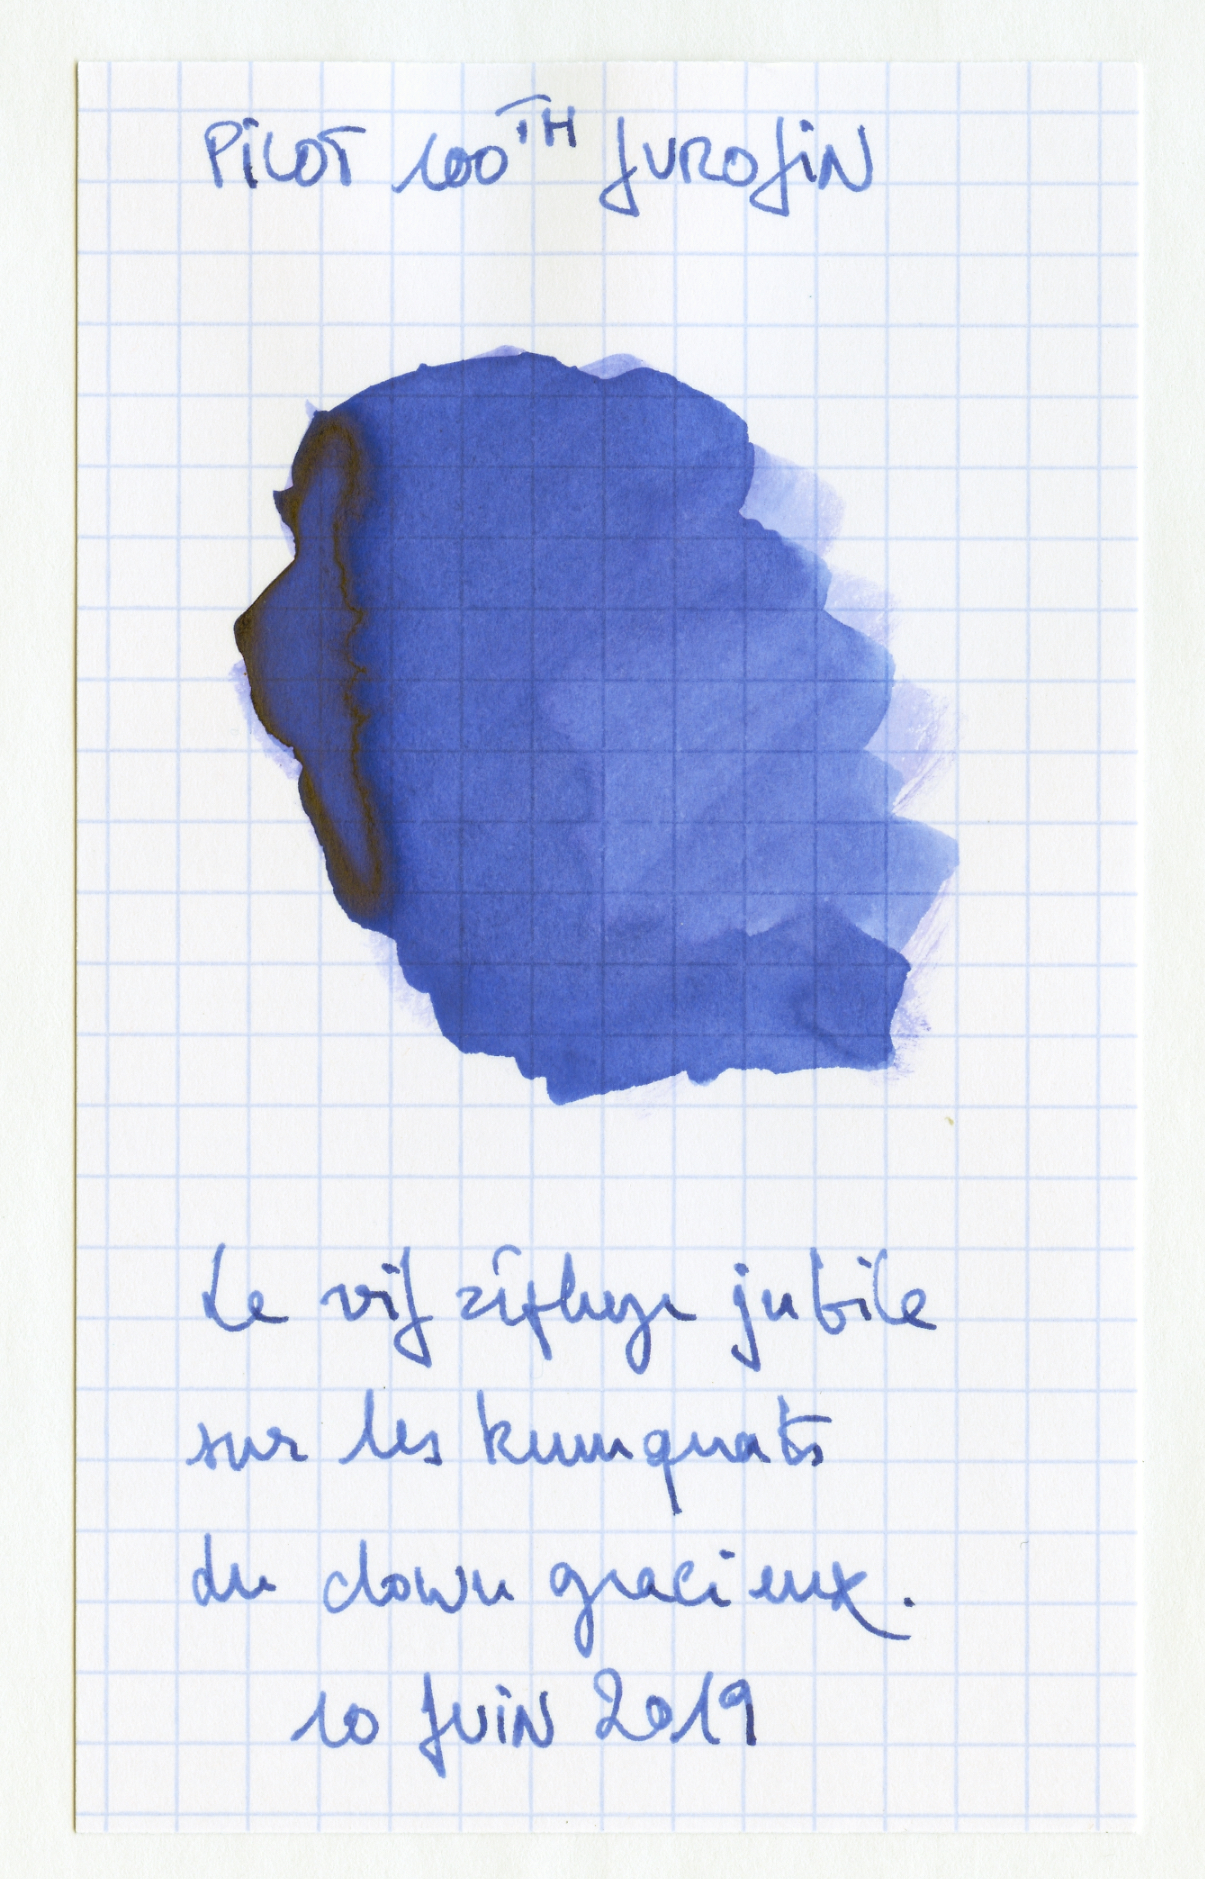 PiLOT 100TH JUROJiN
Le vif zéphyr jubile
sur les kumquats
du clown gracieux.
10 JUiN 2019